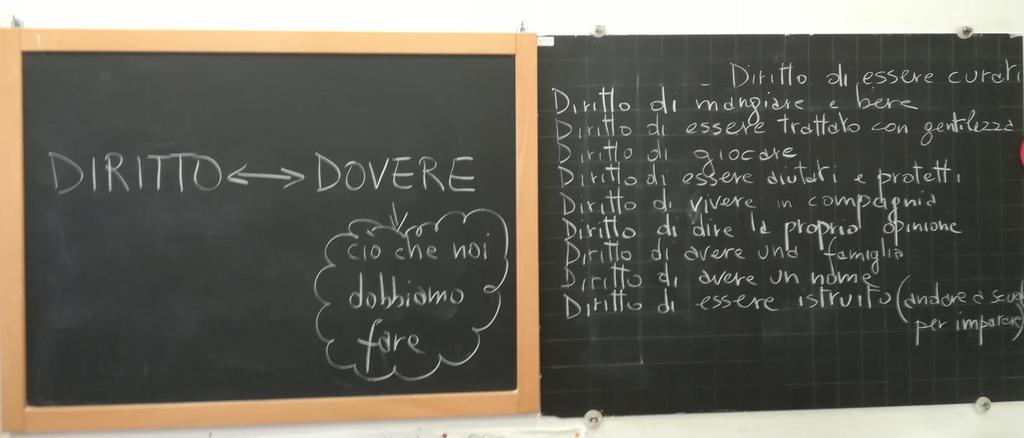 DIRITTO ↔ DOVERE
ciò che noi
dobbiamo
fare
- Diritto di essere curati
Diritto di mangiare e bere
Diritto di essere trattato con gentilezza
Diritto di giocare
Diritto di essere aiutati e protetti
Diritto di vivere in compagnia
Diritto di dire la propria opinione
Diritto di avere una famiglia
Diritto di avere un nome
Diritto di essere istruito (andare a scuol
per imparare)